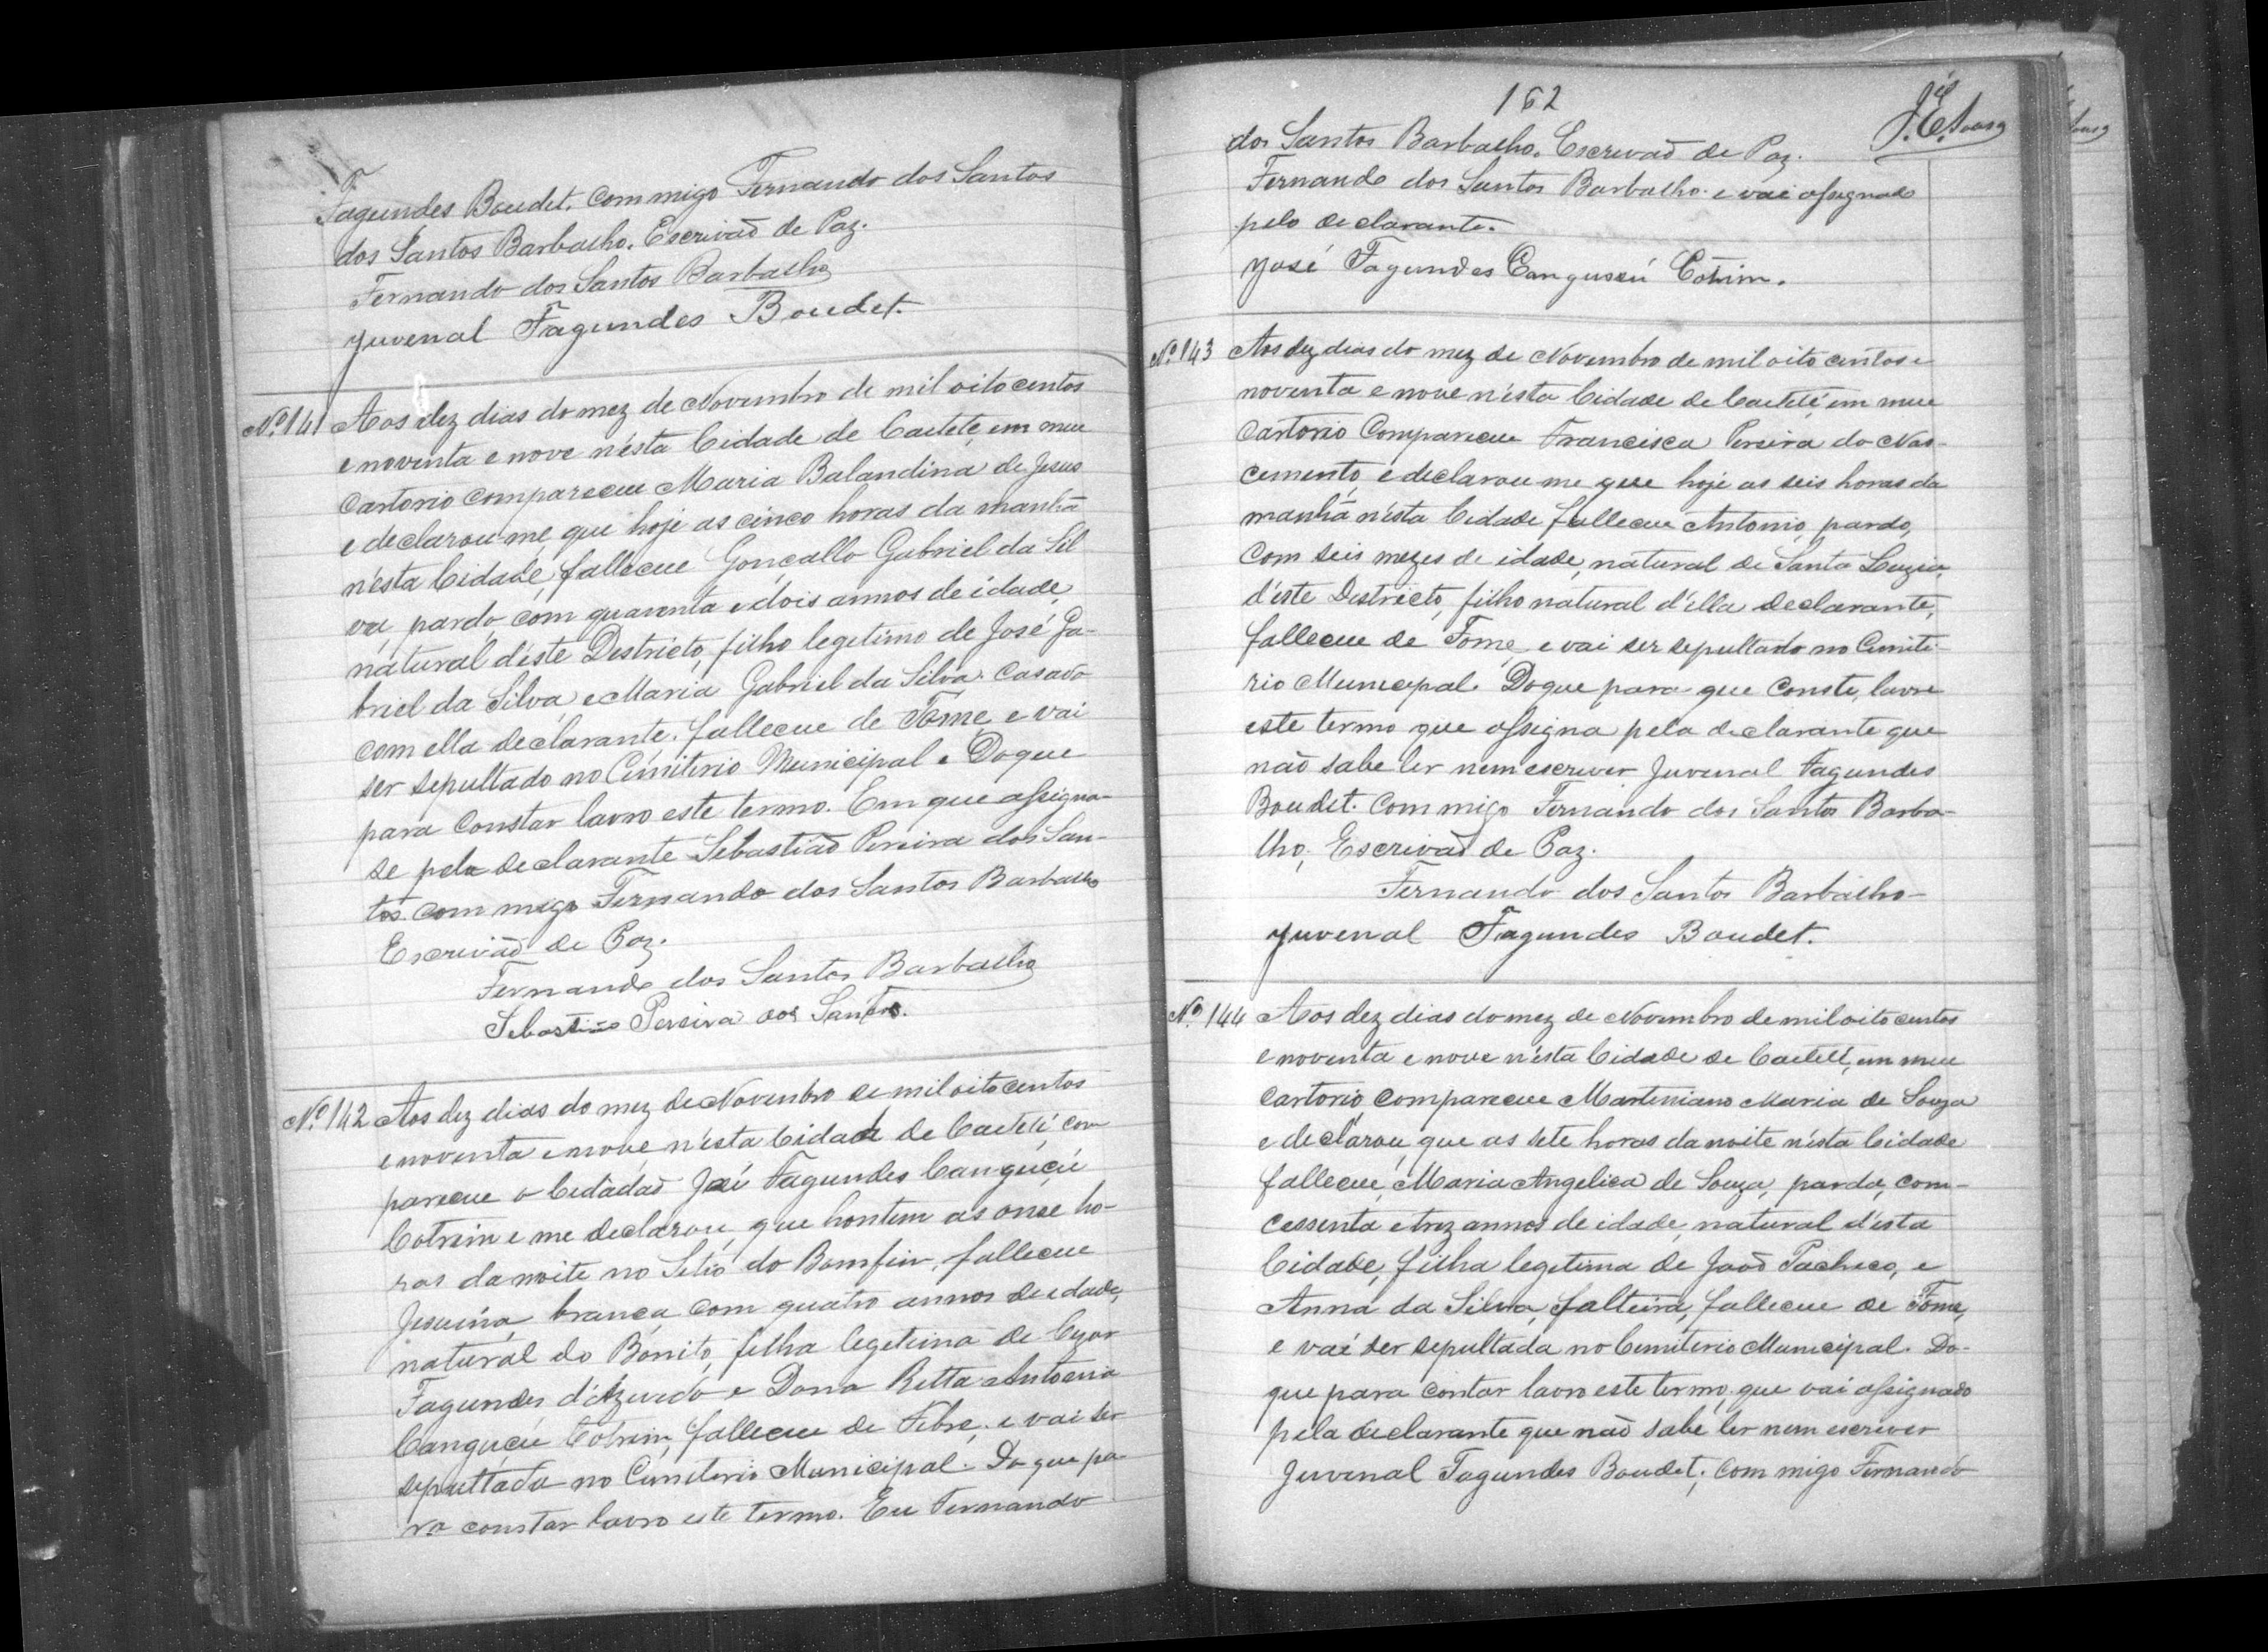 Fagundes Boudet. Commigo Fernando dos Santos
dos Santos Barbalho. Escrivaõ de Paz.
Fernando dos Santos Barbalho
Juvenal Fagundes Boudet.
Nº 141 Aos dez dias do mez de Novembro de mil oitocentos
e noventa e nove n'ésta Cidade de Caeteté, em meu
Cartorio compareceu Maria Balandina de Jesus
e declarou-me que hoje as cinco horas da manhã
n'ésta Cidade, falleceu Gonçallo Gabriel da Sil
va, pardo, com quarenta e dois annos de idade,
natural d'éste Destricto, filho legetimo de José Ga-
briel da Silva, e Maria Gabriel da Silva. Casado
com ella declarante. falleceu de Fome, e vai
ser sepultado no Cimiterio Municipal e Doque
para constar lavro este termo. Em que assigna-
se pela declarante Sebastiaõ Pereira dos San-
tos. Com migo Fernando dos Santos Barbalho
Escrivaõ de Paz.
Fernando dos Santos Barbalho
Sebastião Pereira dos Santos.
Nº 142 Aos dez dias do mez de Novembro de mil oitocentos
e noventa e nove, n'ésta Cidade de Caeteté, com
pareceu o Cidadaõ José Fagundes Canguçú
Cotrim e me declarou, que hontem as onse ho-
ras da noite no Setio do Bomfim, falleceu
Jesuina, branca, com quatro annos de edade,
natural do Bonito, filha legetima de
Fagundes d'Azevedo e Dona Ritta Antonia
Canguçú Cotrim, falleceu de Febre, e vai ser
sepultada no Cimiterio Municipal. Do que pa-
ra constar lavro este termo. Eu Fernando
162
dos Santos Barbalho. Escrivaõ de Paz.
Fernando dos Santos Barbalho. e vai assignado
pelo declarante.
José Fagundes Cangussú Cotrim.
Nº 143 Aos dez dias do mez de Novembro de mil oito centos e
noventa e nove n'ésta Cidade de Caeteté, em meu
Cartorio Compareceu Francisca Pereira do Nas-
cemento, e declarou-me que hoje as seis horas da
manhã n'ésta Cidade falleceu Antonio, pardo,
com seis mezes de idade, natural de Santa Luzia,
d'éste Destricto, filho natural d'élla declarante,
falleceu de Fome, e vai ser sepultado no Cimite-
rio Municipal. Doque para que conste, lavro
este termo que assigna pela declarante que
naõ sabe ler nem escrever Juvenal Fagundes
Boudet. Com migo Fernando dos Santos Barba-
lho, Escrivaõ de Paz.
Fernando dos Santos Barbalho
Juvenal Fagundes Boudet.
Nº 144 Aos dez dias do mez de Novembro de mil oito centos
e noventa e nove n'ésta Cidade de Caeteté, em meu
Cartorio, compareceu Marteniano Maria de Souza
e declarou, que as sete horas da noite n'ésta Cidade
falleceu, Maria Angelica de Souza, parda, com-
cessenta e trez annos de idade, natural d'ésta
Cidade, filha legetima de Joaõ Pacheco, e
Anna da Silva, solteira, falleceu de Fome,
e vai ser sepultada no Cemiterio Municipal. Do-
que para contar lavro este termo, que vai assignado
pela declarante que naõ sabe ler nem escrever
Juvenal Fagundes Boudet, Com migo Fernando